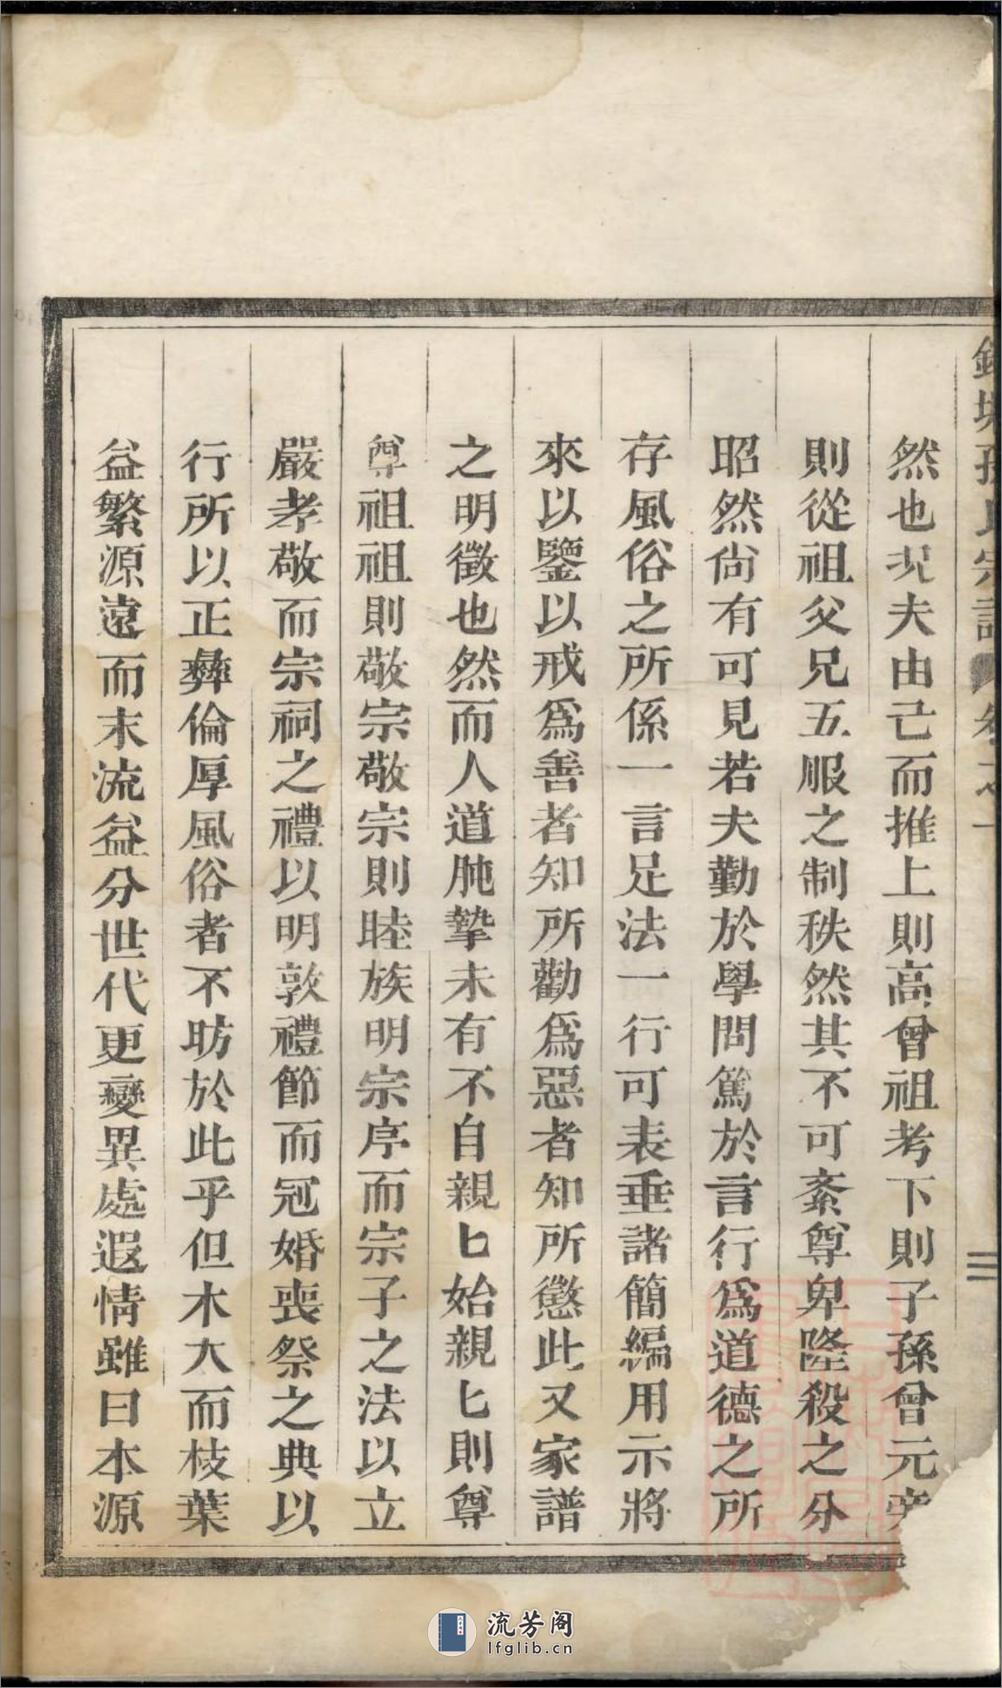 孫氏宗譜 卷之一
三
然也況夫由己而推上則高曾祖考下則子孫曾元旁
則從祖父兄五服之制秩然其不可紊尊卑隆殺之分
昭然尙有可見若夫勤於學問篤於言行爲道德之所
存風俗之所係一言足法一行可表垂諸簡編用示將
來以鑒以戒爲善者知所勸爲惡者知所懲此又家譜
之明徵也然而人道肫摯未有不自親匕始親匕則尊
尊祖祖則敬宗敬宗則睦族明宗序而宗子之法以立
嚴孝敬而宗祠之禮以明敦禮節而冠婚喪祭之典以
行所以正彝倫厚風俗者不昉於此乎但木大而枝葉
益繁源遠而末流益分世代更變異處遐情雖曰本源
流芳阁
lfglib.cn